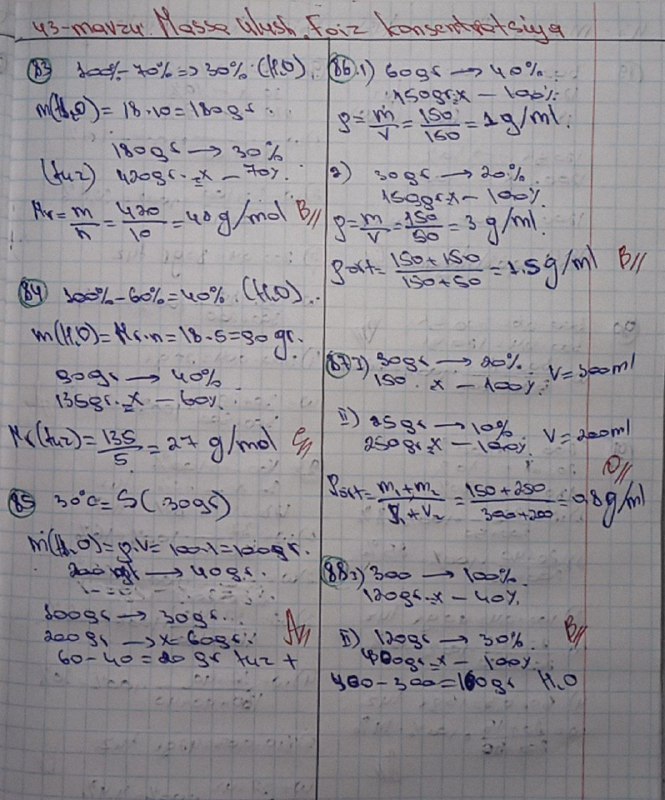 43-mavzu. Massa ulush. Foiz konsentratsiya
83 100%-70%=>30% (H₂O)
m(H₂O)=18·10=180gr.
180gr → 30%
(tuz) 420gr=x - 70%
Mr=m/n=420/10=42 g/mol B//
84 100%-60%=40% (H₂O)
m(H₂O)=Mr·n=18·5=90gr.
90gr → 40%
135gr=x - 60%
Mr(tuz)=135/5=27 g/mol C//
85 30°C=S(30gr)
m(H₂O)=ρ·V=100·1=100gr.
200gr → 40gr.
100gr → 30gr.
200gr → x=60gr
60-40=20gr tuz + A//
86 1) 60gr → 40%
150gr x - 100%
ρ=m/V=150/150=1g/ml.
2) 30gr → 20%
150gr x - 100%
ρ=m/V=150/50=3 g/ml.
ρort=150+150/150+50=1.5g/ml B//
87 I) 30gr → 20% V=300ml
150 x - 100%
II) 25gr → 10% V=200ml
250gr x - 100%
D//
ρort=m₁+m₂/V₁+V₂=150+250/300+200=0.8g/ml
88 I) 300 → 100%
120gr x - 40%
II) 120gr → 30% B//
400gr x - 100%
400-300=100gr H₂O